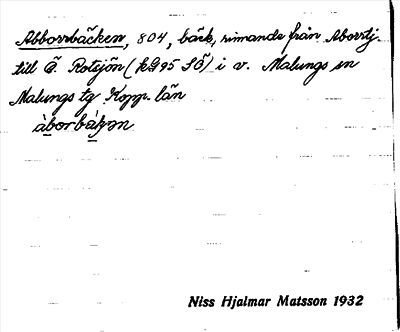 Abborrbäcken, 804, bäck, rinnande från Aborrtj.
till Ö. Rotsjön (kG95 SÖ) i v. Malungs sn
Malungs tg Kopp. län
Niss Hjalmar Matsson 1932